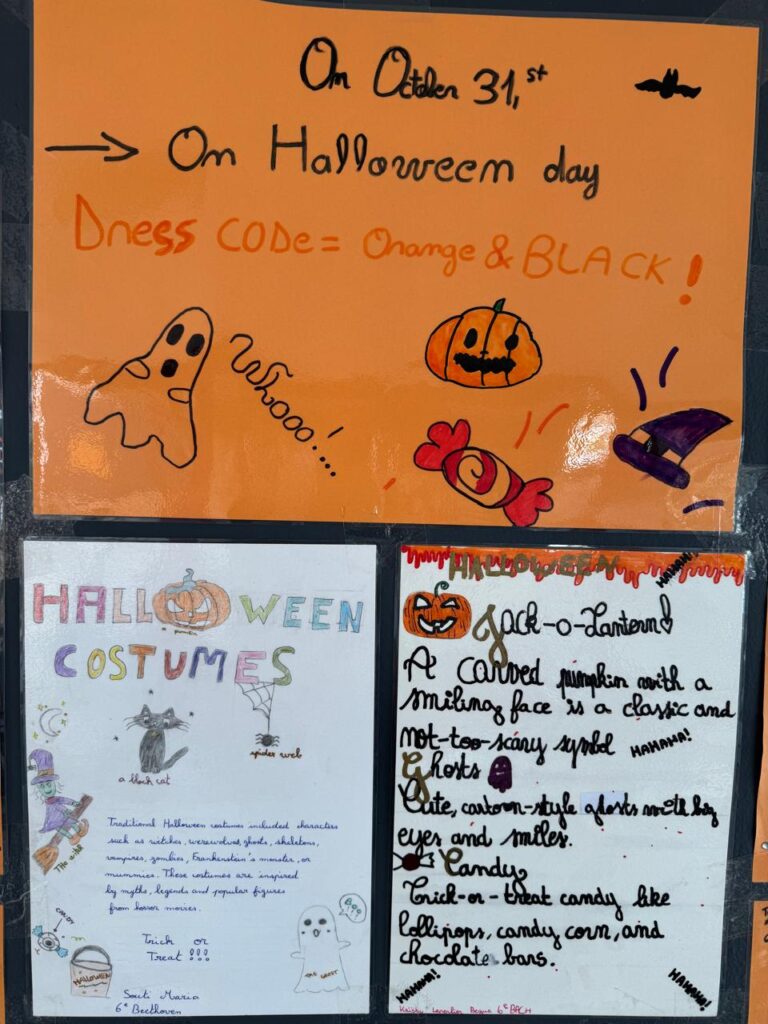 On October 31,st
→ On Halloween day
Dress CODe = Orange & BLACK !
Whooo!...
HALLOWEEN
pumpkin
COSTUMES
a black cat
spider web
The witch
Traditional Halloween costumes included characters
such as witches, werewolves, ghosts, skeletons,
vampires, zombies, Frankenstein's monster, or
mummies. These costumes are inspired
by myths, legends and popular figures
from horror movies.
CANDY
BOO
Trick or
Treat !!!
HALLOWEEN
THE GHOST
Maria
6e Beethoven
HALLOWEEN
HAHAHA!
Jack-o-Lantern
A carved pumpkin with a
smiling face is a classic and
not-too-scary symbol HAHAHA!
Ghosts
Cute, cartoon-style ghosts with big
eyes and smiles.
Candy
Trick-or-treat candy like
lollipops, candy corn, and
chocolate bars.
HAHAHA!
HAHAHA!
6e BACH